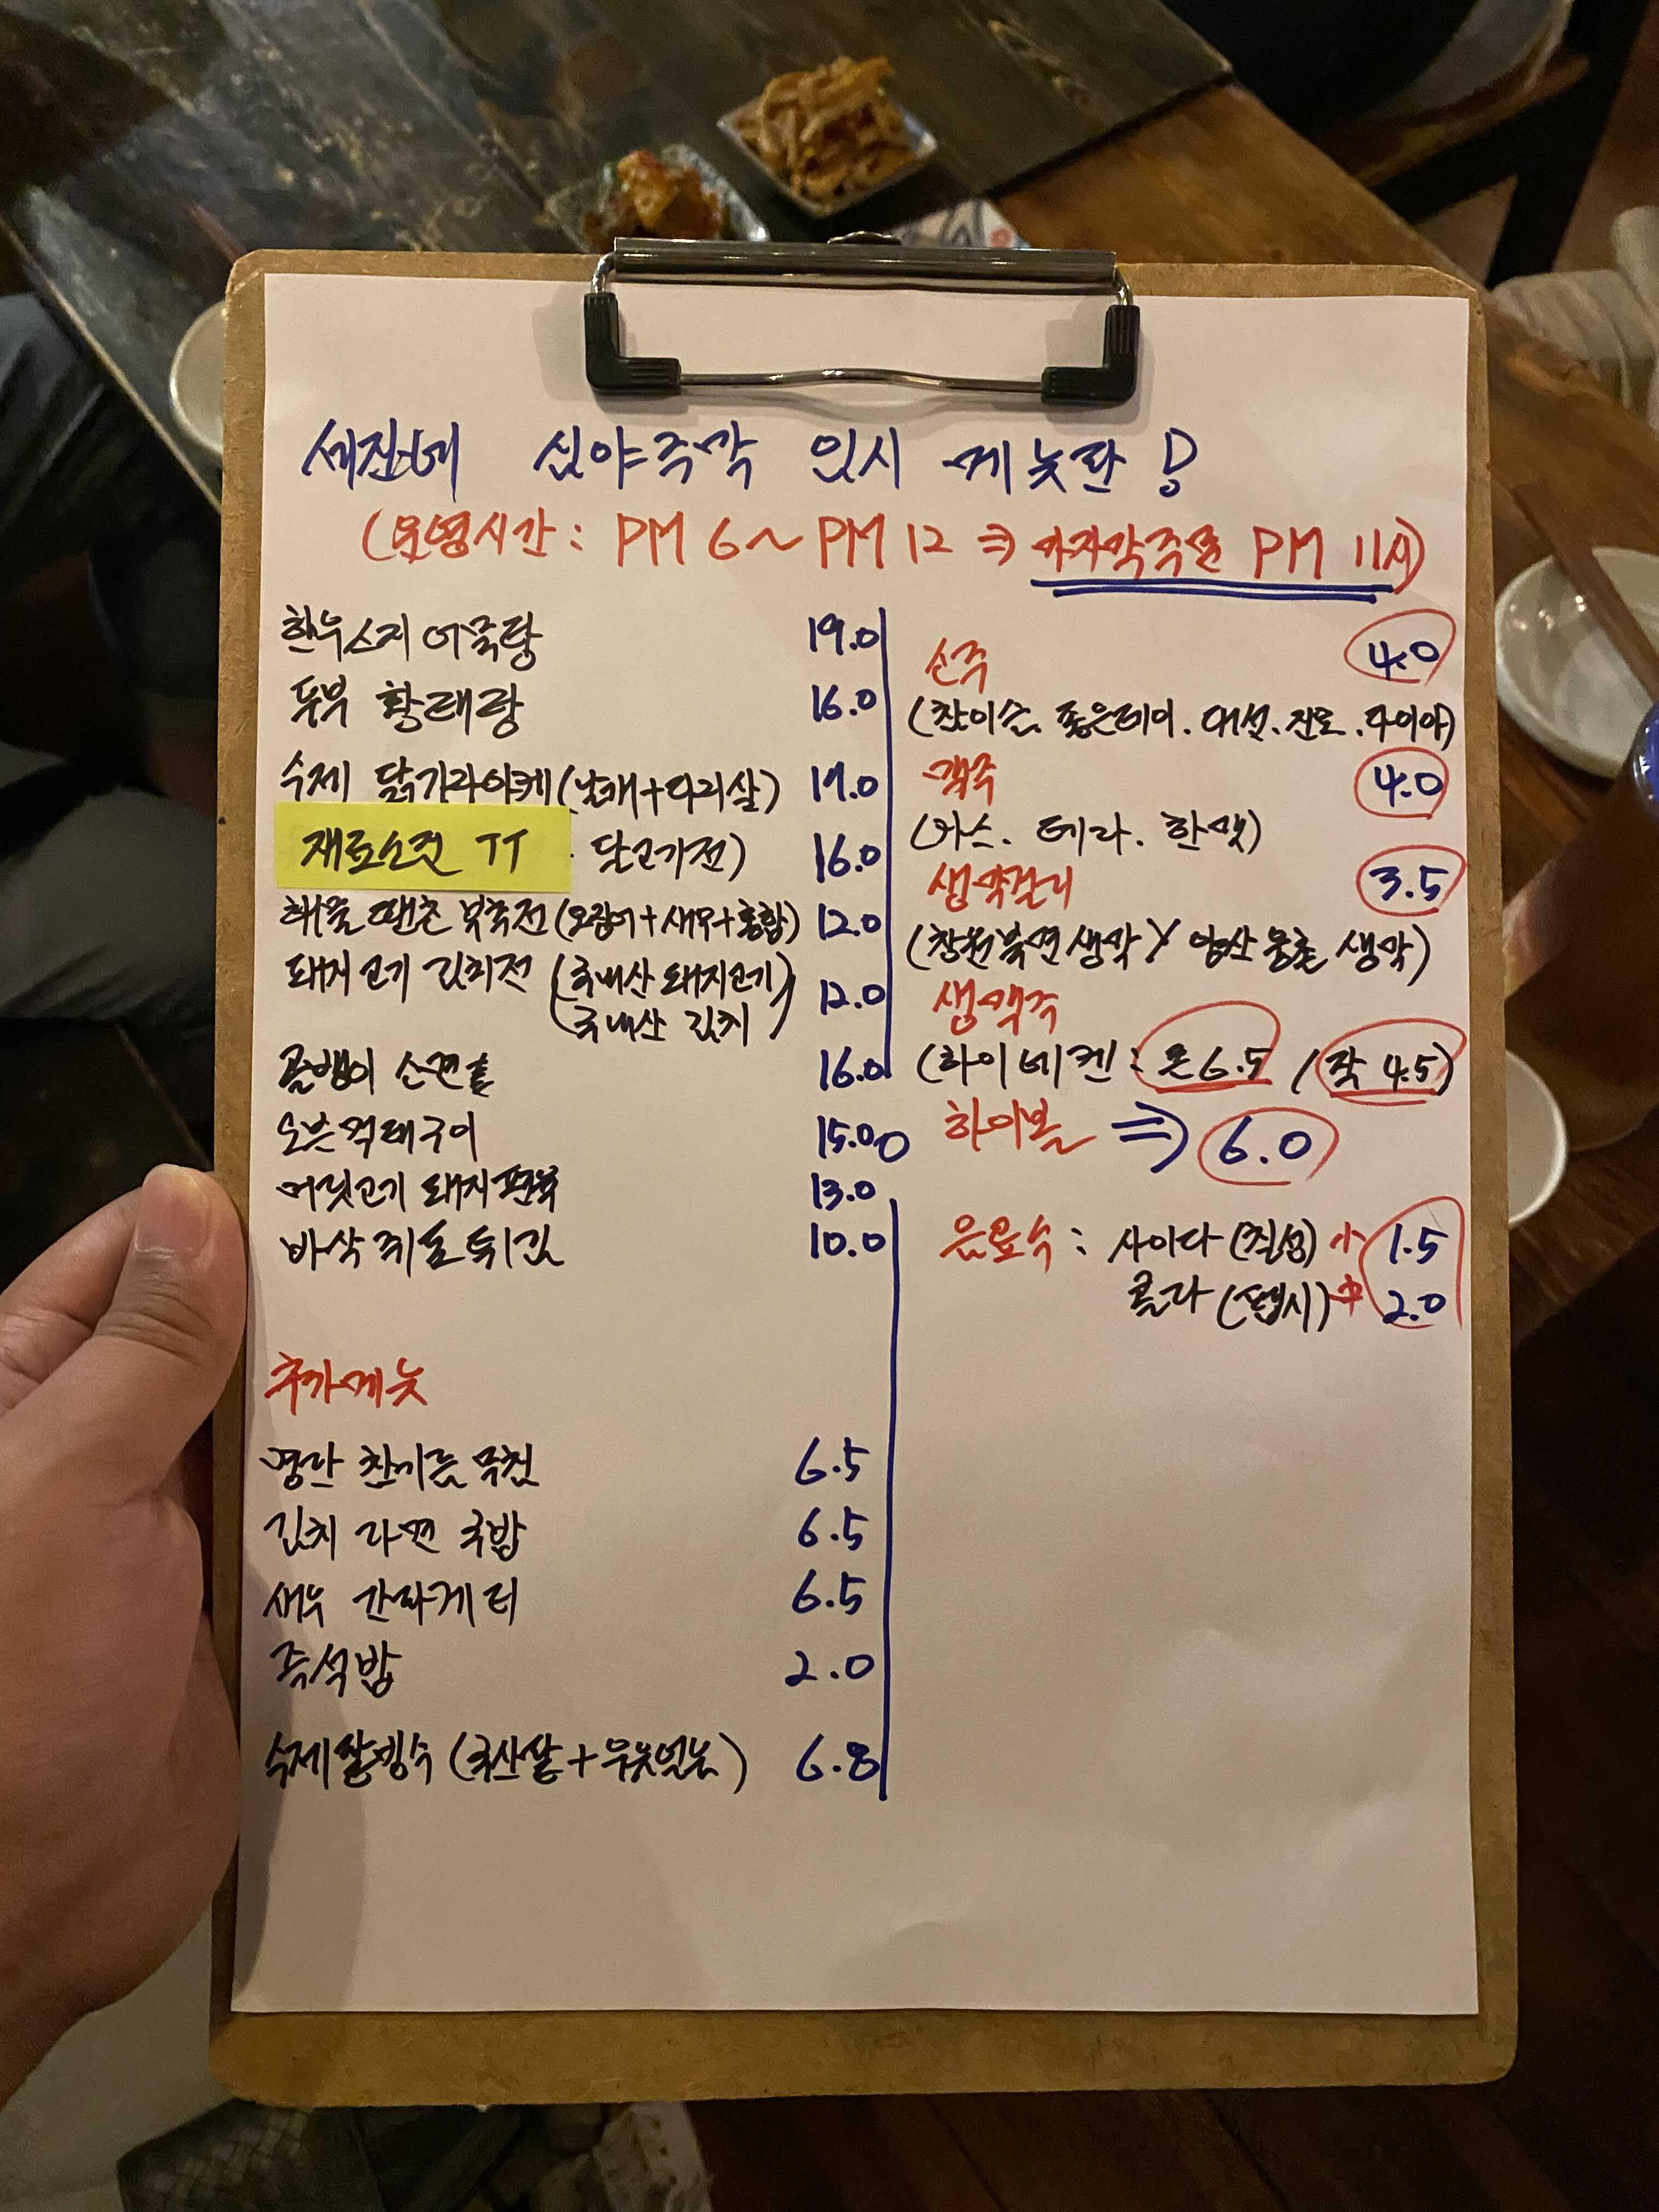 세진네 심야주막 임시 메뉴판!
(운영시간 : PM 6~PM 12 ⇒ 마지막주문 PM 11시)
한우스지 어묵탕 19.0
두부 황태탕 16.0
수제 닭가라아게(날개+다리살) 19.0
재료소진 TT 16.0
해물 땡초 부추전(오징어+새우+홍합) 12.0
돼지고기 김치전 (국내산 돼지고기 12.0
국내산 김치)
골뱅이 소면 16.0
오븐먹태구이 15.0
머릿고기 돼지편육 13.0
바삭 쥐포튀김 10.0
추가메뉴
명란 참기름 무침 6.5
김치 라면 국밥 6.5
새우 간짜게티 6.5
즉석밥 2.0
수제쌀빙수 (국산쌀+우유얼음) 6.8
소주 4.0
(참이슬. 좋은데이. 대선. 진로. 다이아)
맥주 4.0
(카스. 테라. 한맥)
생막걸리 3.5
(창원북면생막 / 양산 웅촌 생막)
생맥주
(하이네켄 : 온6.5 / 작 4.5)
하이볼 ⇒ 6.0
음료수 : 사이다(칠성) 小 1.5
콜라(펩시) 中 2.0